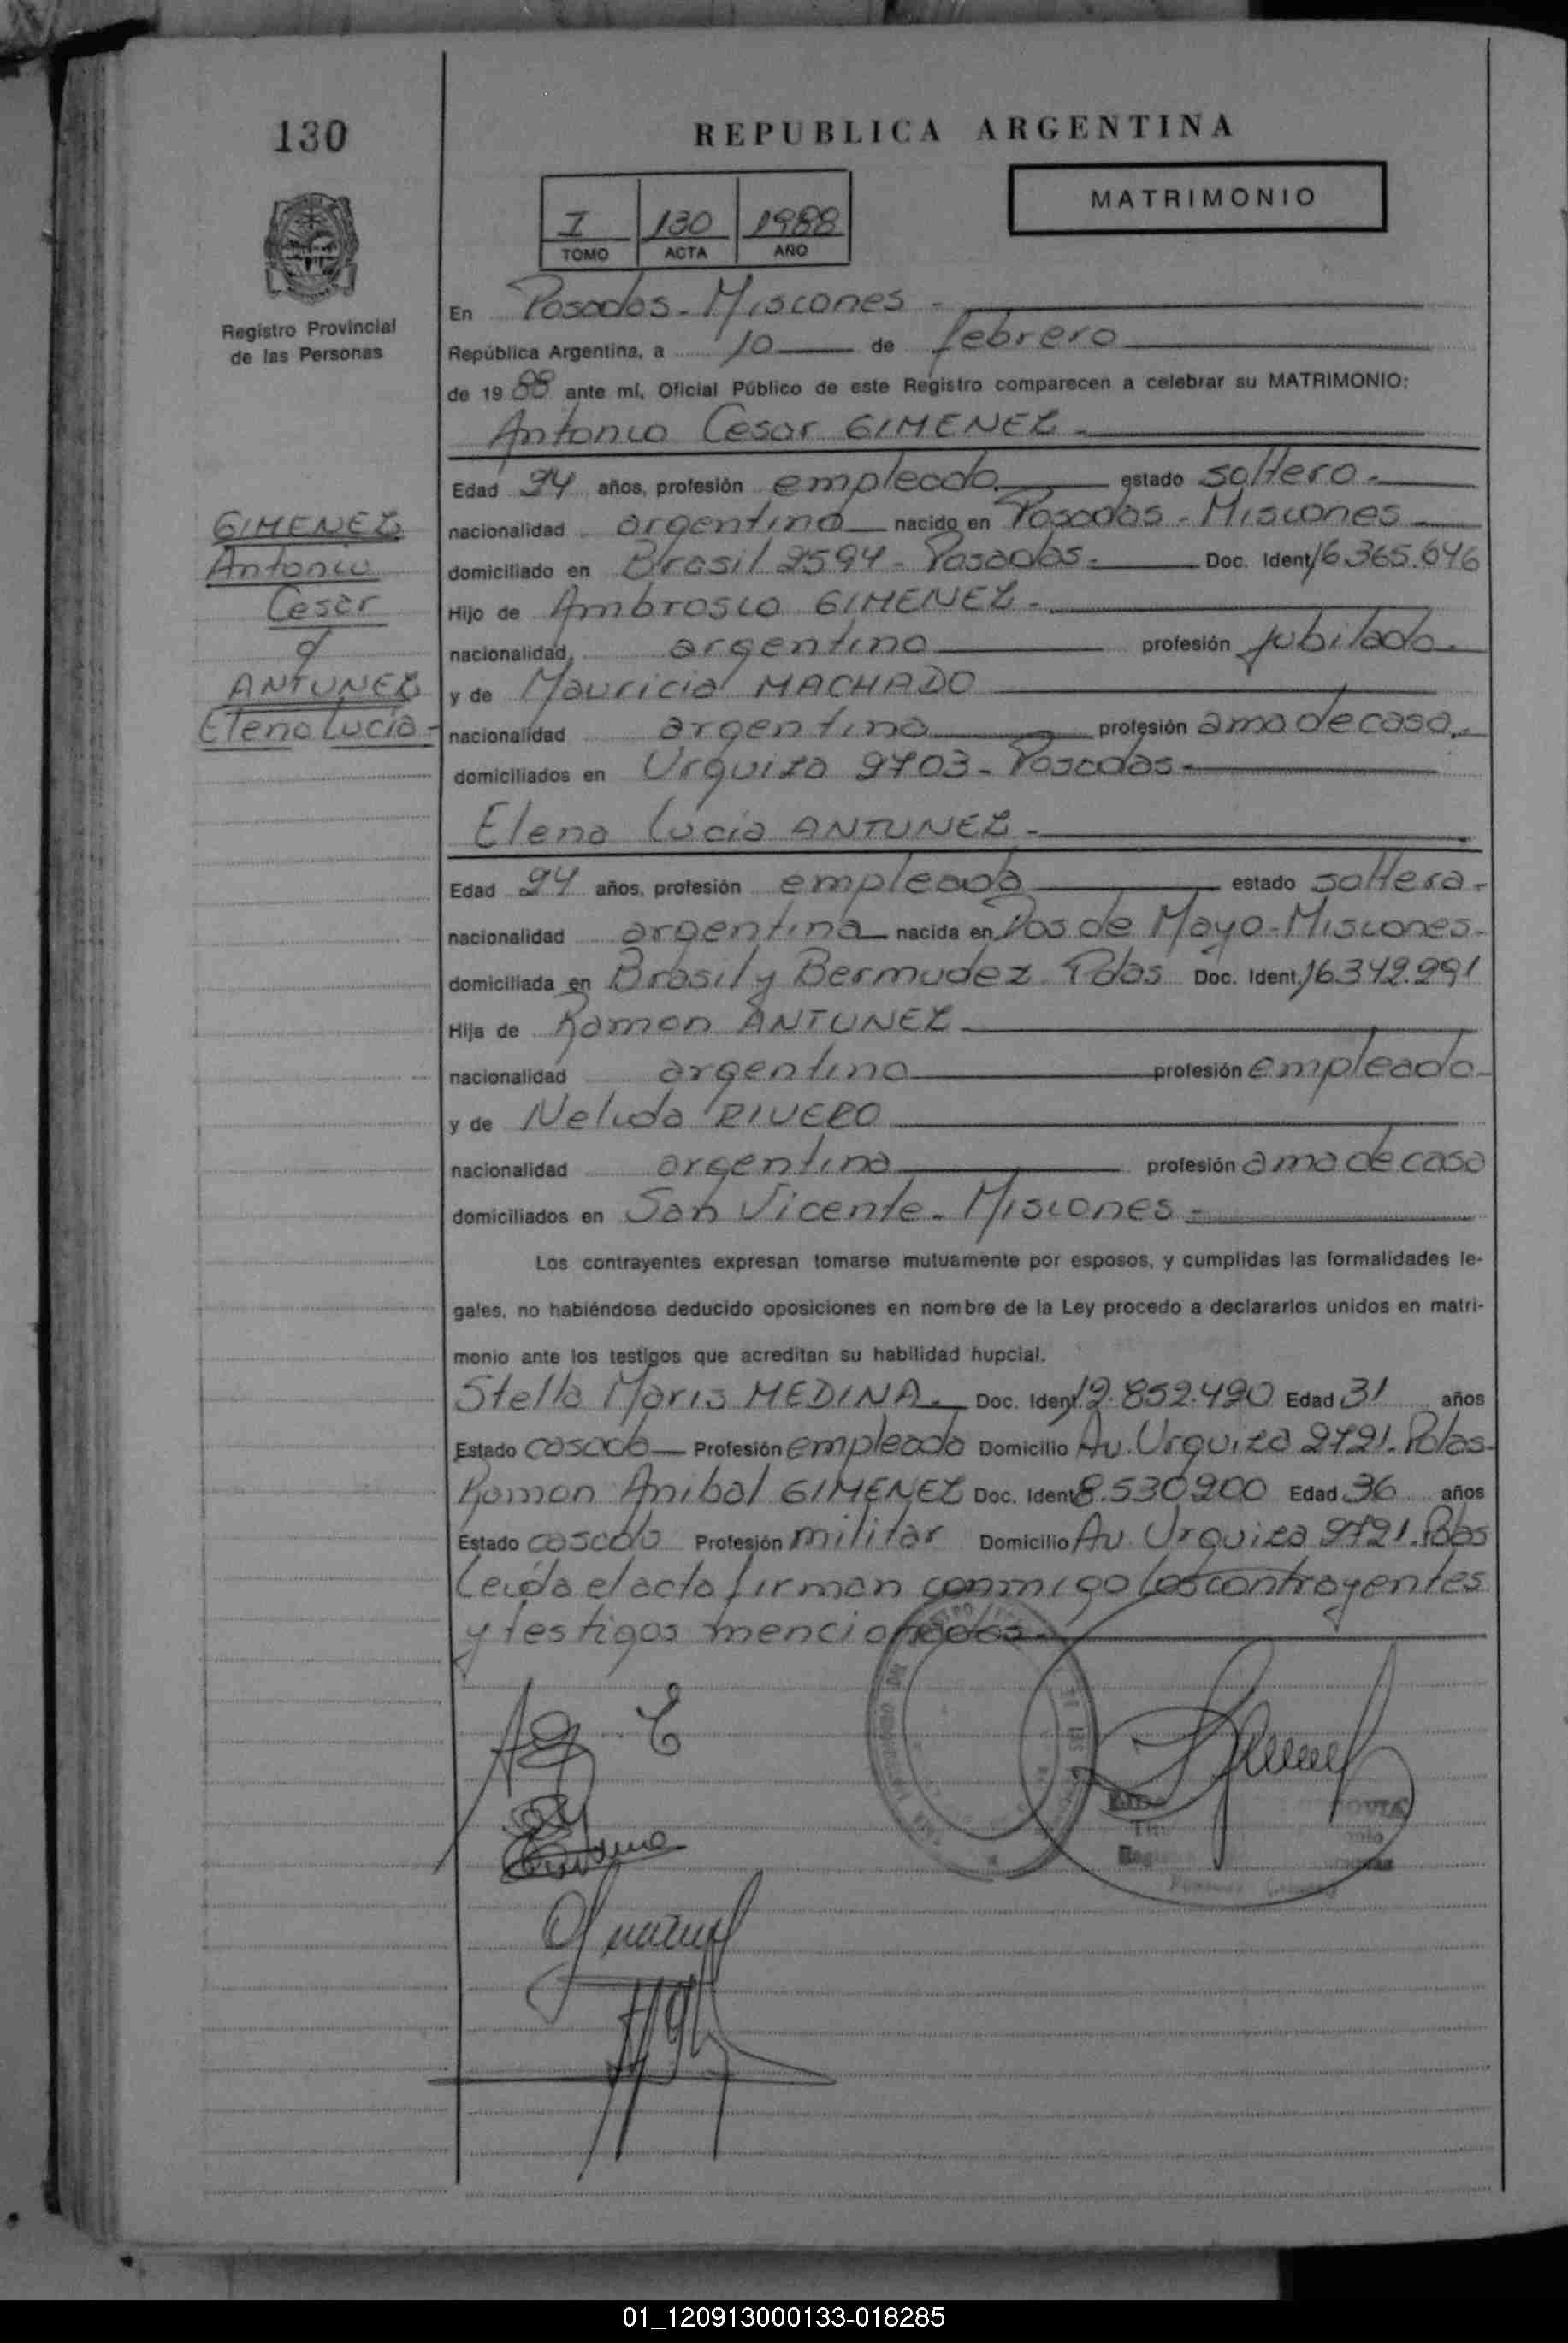 130
REPUBLICA ARGENTINA
MATRIMONIO
I 130 1988
TOMO ACTA AÑO
Registro Provincial
de las Personas
En Posadas - Misiones -
República Argentina, a 10 de febrero
de 1988 ante mí, Oficial Público de este Registro comparecen a celebrar su MATRIMONIO:
Antonio Cesar GIMENEZ -
Edad 24 años, profesión empleado. estado soltero -
nacionalidad argentina nacido en Posadas - Misiones
domiciliado en Brasil 2594 - Posadas - Doc. Ident. 16.365.646
Hijo de Ambrosio GIMENEZ -
nacionalidad argentino profesión jubilado.
y de Mauricia MACHADO
nacionalidad argentina profesión ama de casa.
domiciliados en Urquiza 2703 - Posadas -
GIMENEZ
Antonio
Cesar
y
ANTUNEZ
Elena Lucia -
Elena Lucia ANTUNEZ -
Edad 24 años, profesión empleada estado soltera -
nacionalidad argentina nacida en Dos de Mayo - Misiones -
domiciliada en Brasil y Bermudez Pdas Doc. Ident. 16.342.291
Hija de Ramon ANTUNEZ
nacionalidad argentino profesión empleado -
y de Nelida RIVERO
nacionalidad argentina profesión ama de casa
domiciliados en San Vicente - Misiones -
Los contrayentes expresan tomarse mutuamente por esposos, y cumplidas las formalidades le-
gales, no habiéndose deducido oposiciones en nombre de la Ley procedo a declararlos unidos en matri-
monio ante los testigos que acreditan su habilidad hupcial.
Stella Maris MEDINA. Doc. Ident. 12.852.420 Edad 31 años
Estado casada Profesión empleada Domicilio Av. Urquiza 2721. Pdas -
Ramon Anibal GIMENEZ Doc. Ident. 8.530.200 Edad 36 años
Estado casado Profesión militar Domicilio Av. Urquiza 2721. Pdas
Leida el acta firman conmigo los contrayentes
y testigos mencionados -
01_120913000133-018285